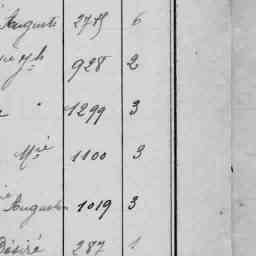 Auguste 2775 6
928 2
" 1299 3
Mie 1100 3
Augustin 1019 3
Désiré 287 1